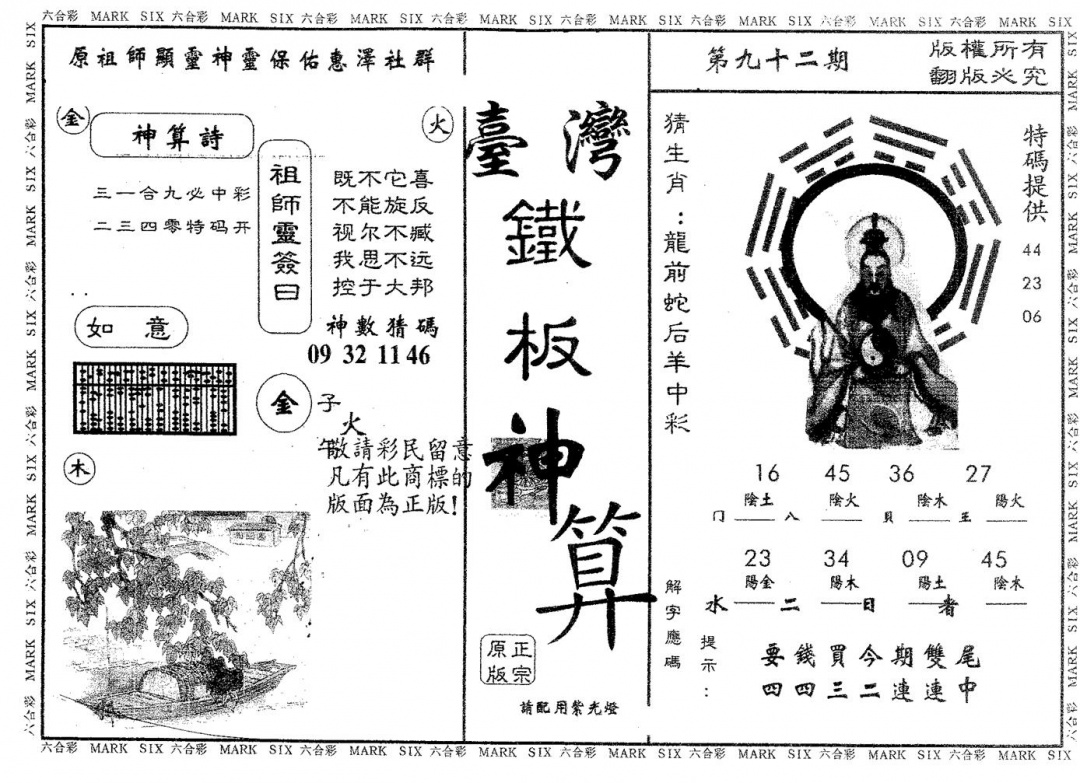 六合彩 MARK SIX 六合彩 MARK SIX 六合彩 MARK SIX 六合彩 MARK SIX 六合彩 MARK SIX 六合彩 MARK SIX 六合彩 MARK SIX 六合彩 MARK SIX
原祖師顯靈神靈保佑惠澤社群
金
神算詩
火
三一合九必中彩
二三四零特码开
祖師靈簽曰
既不它喜
不能旋反
视尔不臧
我思不远
控于大邦
神數猜碼
09 32 11 46
如意
金
子
火
午
木
敬請彩民留意
凡有此商標的
版面為正版!
臺灣
鐵
板
神
算
正宗
原版
請配用紫光燈
第九十二期
版權所有
翻版必究
猜生肖：龍前蛇后羊中彩
特碼提供
44
23
06
16 45 36 27
陰土 陰火 陰木 陽火
门 八 貝 王
23 34 09 45
陽金 陽木 陽土 陰木
水 二 日 者
解字應碼
提示：
要錢買今期雙尾
四四三二連連中
六合彩 MARK SIX 六合彩 MARK SIX 六合彩 MARK SIX 六合彩 MARK SIX 六合彩 MARK SIX 六合彩 MARK SIX 六合彩 MARK SIX 六合彩 MARK SIX